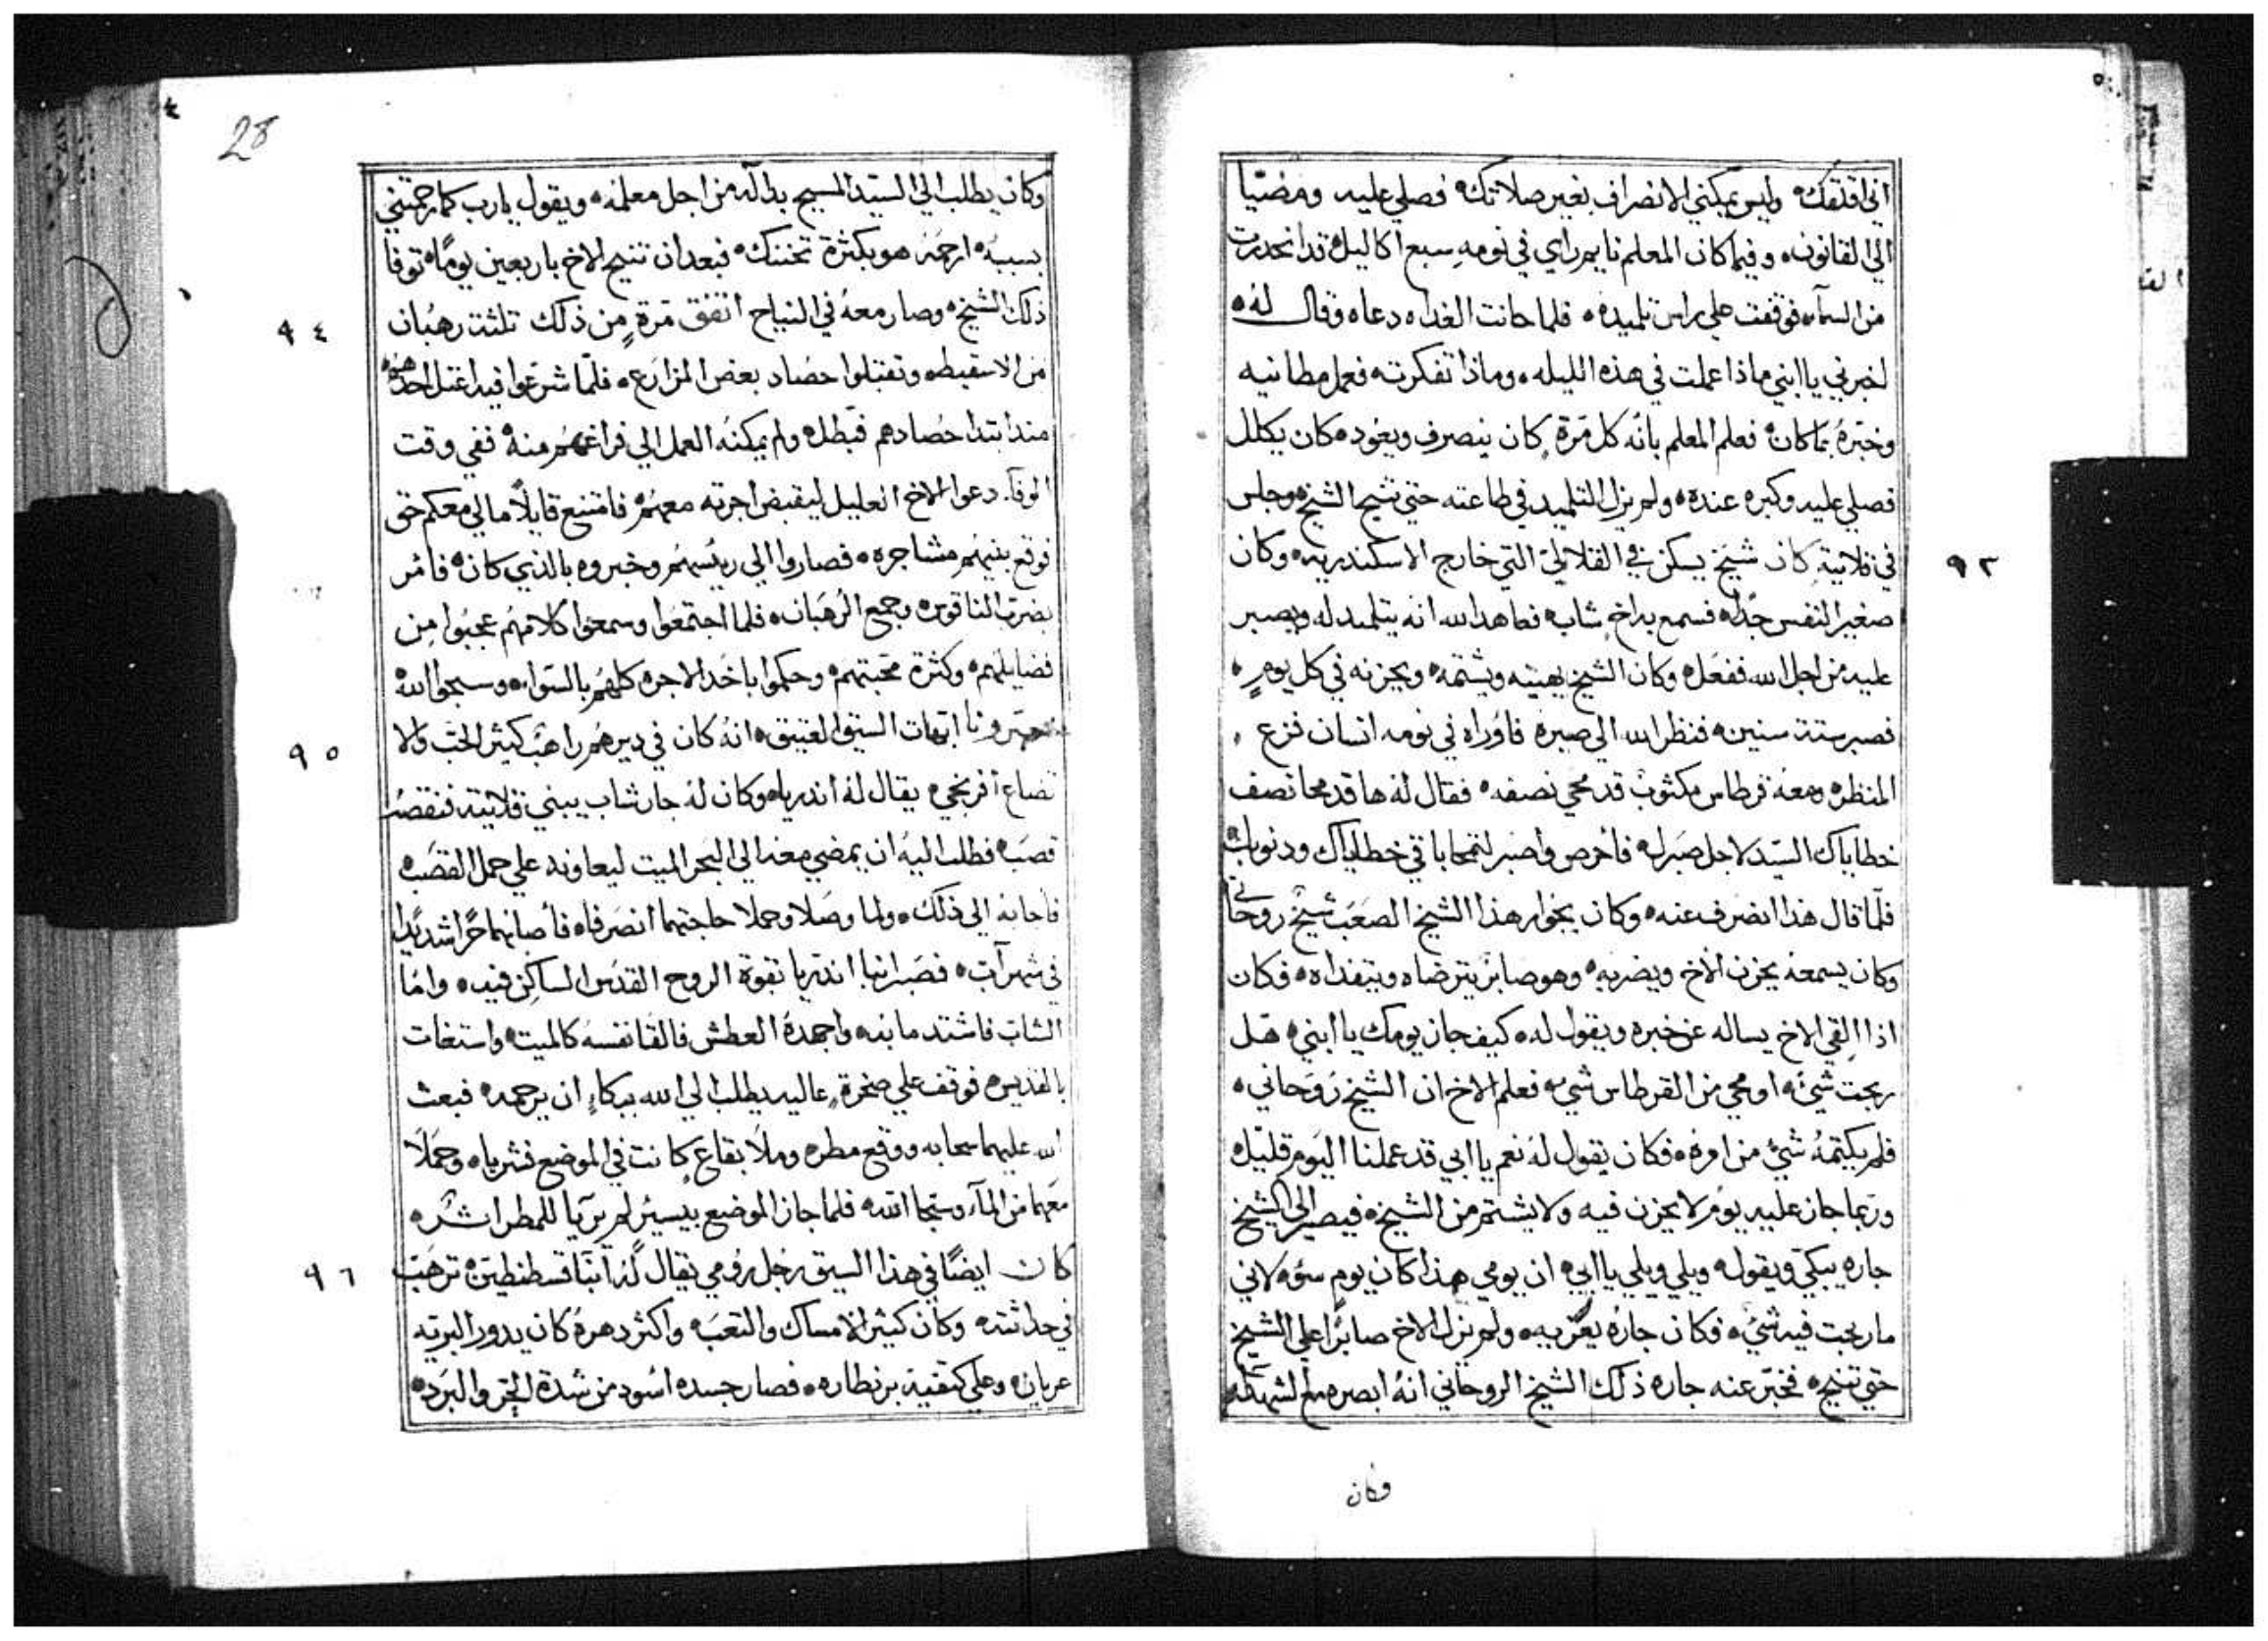 اني اقلقك ٥ وليس يمكنني الانصراف بغير صلاتك ٥ فصلي عليه ومضيا
الي القانون ٥ وفيما كان المعلم نايم راي في نومه سبع اكاليل ٥ قد انحدرت
من السمآء فوقفت علي راس تلميده ٥ فلما حانت الغداه دعاه وقال له ٥
اخبرني يا ابني ماذا عملت في هذه الليله ٥ وماذا تفكرت ٥ فعمل مطانيه
وخبرهُ بما كان ٥ فعلم المعلم بانه كل مرةٍ كان ينصرف ويعود ٥ كان يكلل
فصلي عليه وكبره عنده ٥ ولم يزل التلميد في طاعته حتي تنيح الشيخ ٥ وجلس
٩٣
في قلايته كان شيخ يسكن في القلالي التي خارج الاسكندريه ٥ وكان
صغير النفس جداً ٥ فسمع به اخ شاب ٥ فعاهد الله انه يتلمد له ويصبر
عليه من اجل الله ففعل ٥ وكان الشيخ يهينه ويشتمه ٥ ويحزنه في كل يومٍ ٥
فصبر ستة سنين ٥ فنظر الله الي صبره فاوراه في نومه انسان فزع
المنظر ٥ ومعه قرطاس مكتوب قد محي نصفه ٥ فقال له ها قد محا نصف
خطاياك السيد لاجل صبرك ٥ فاحرص واصبر لتمحا باقي خطاياك ودنوبك
فلما قال هذا انصرف عنه ٥ وكان بجوار هذا الشيخ الصعب شيخ روحاني
وكان يسمعه يحزن الاخ ويضربه ٥ وهو صابر يترضاه ويتفداه ٥ فكان
اذا القي الاخ يساله عن خبره ويقول له ٥ كيف جاز يومك يا ابني ٥ هل
ربحت شيٌ ٥ او محي من القرطاس شي ٥ فعلم الاخ ان الشيخ روحاني ٥
فلم يكتمهُ شيٌ من امره ٥ فكان يقول له نعم يا ابي قد عملنا اليوم قليل ٥
وربما جاز عليه يوم لا يحزن فيه ولا يشتم من الشيخ ٥ فيصير الي الشيخ
جاره يبكي ويقول ٥ ويلي ويلي يا ابي ٥ ان يومي هذا كان يوم سوٌ ٥ لاني
ما ربحت فيه شيٌ ٥ فكان جاره يعزيه ٥ ولم يزل الاخ صابراً علي الشيخ
حتي تنيح ٥ فخبر عنه جاره ذلك الشيخ الروحاني انهُ ابصره مع الشهدآء
وكان
28
وكان يطلب الي السيد المسيح بدآلة من اجل معلمه ٥ ويقول يارب كما رحمتني
بسببه ٥ ارحمه هو بكثرة تحننك ٥ فبعد ان تنيح الاخ باربعين يوماً ٥ توفا
٩٤
ذلك الشيخ ٥ وصار معهُ في النياح اتفق مرةٍ من ذلك تلثت رهبان
من الاسقيط ٥ وتقبلوا حصاد بعض المزارع ٥ فلما شرعوا فيه اعتل احدهم ٥
مند ابتدا حصادهم فبطل ٥ ولم يمكنه العمل الي فراغهم منه ٥ ففي وقت
الوفآء دعوا الاخ العليل ليقبض اجرته معهم ٥ فامتنع قايلاً ما لي معكم حق
فوقع بينهم مشاجره ٥ فصاروا الي ريسهم وخبروه بالذي كان ٥ فامر
بضرب الناقوس ٥ وجمع الرهبان ٥ فلما اجتمعوا وسمعوا كلامهم عجبوا من
فضايلهم ٥ وكثرة محبتهم ٥ وحكموا باخد الاجره كلهم بالسوا ٥ وسبحوا الله
٩٥
ابهات السيق العتيق ٥ انهُ كان في ديرهم راهب كثير الحب والا
تضاع افرنجي ٥ يقال له اندريا ٥ وكان له جار شاب يبني قلايته فنقصت
قصب ٥ فطلب اليه ان يمضي معه الي البحر الميت ليعاونه علي حمل القصب ٥
فاجابه الي ذلك ٥ ولما وصلا وحملا حاجتهما انصرفا ٥ فأصابهما حراً شديداً
في شهر آب ٥ فصبر انبا اندريا بقوة الروح القدس الساكن فيه ٥ واما
الشاب فاشتد ما به ٥ واجهدهُ العطش فالقا نفسه كالميت ٥ واستغات
بالقديس ٥ فوقف علي صخرةٍ عاليه يطلب الي الله ببكاءٍ ان يرحمه ٥ فبعث
الله عليهما سحابه ووقع مطر ٥ وملا بقاعٍ كانت في الموضع فشربا ٥ وحملا
معهما من المآء وسبحا الله ٥ فلما جازا الموضع بيسير لم يريا للمطر اثر ٥
٩٦
كان ايضاً في هذا السيق رجل رومي يقال له انبا قسطنطين ٥ ترهب
في حداثته ٥ وكان كثير الامساك والتعب ٥ واكثر دهره كان يدور البريه
عريان ٥ وعلي كتفيه برنطاره ٥ فصار جسده اسود من شدة الحر والبرد ٥